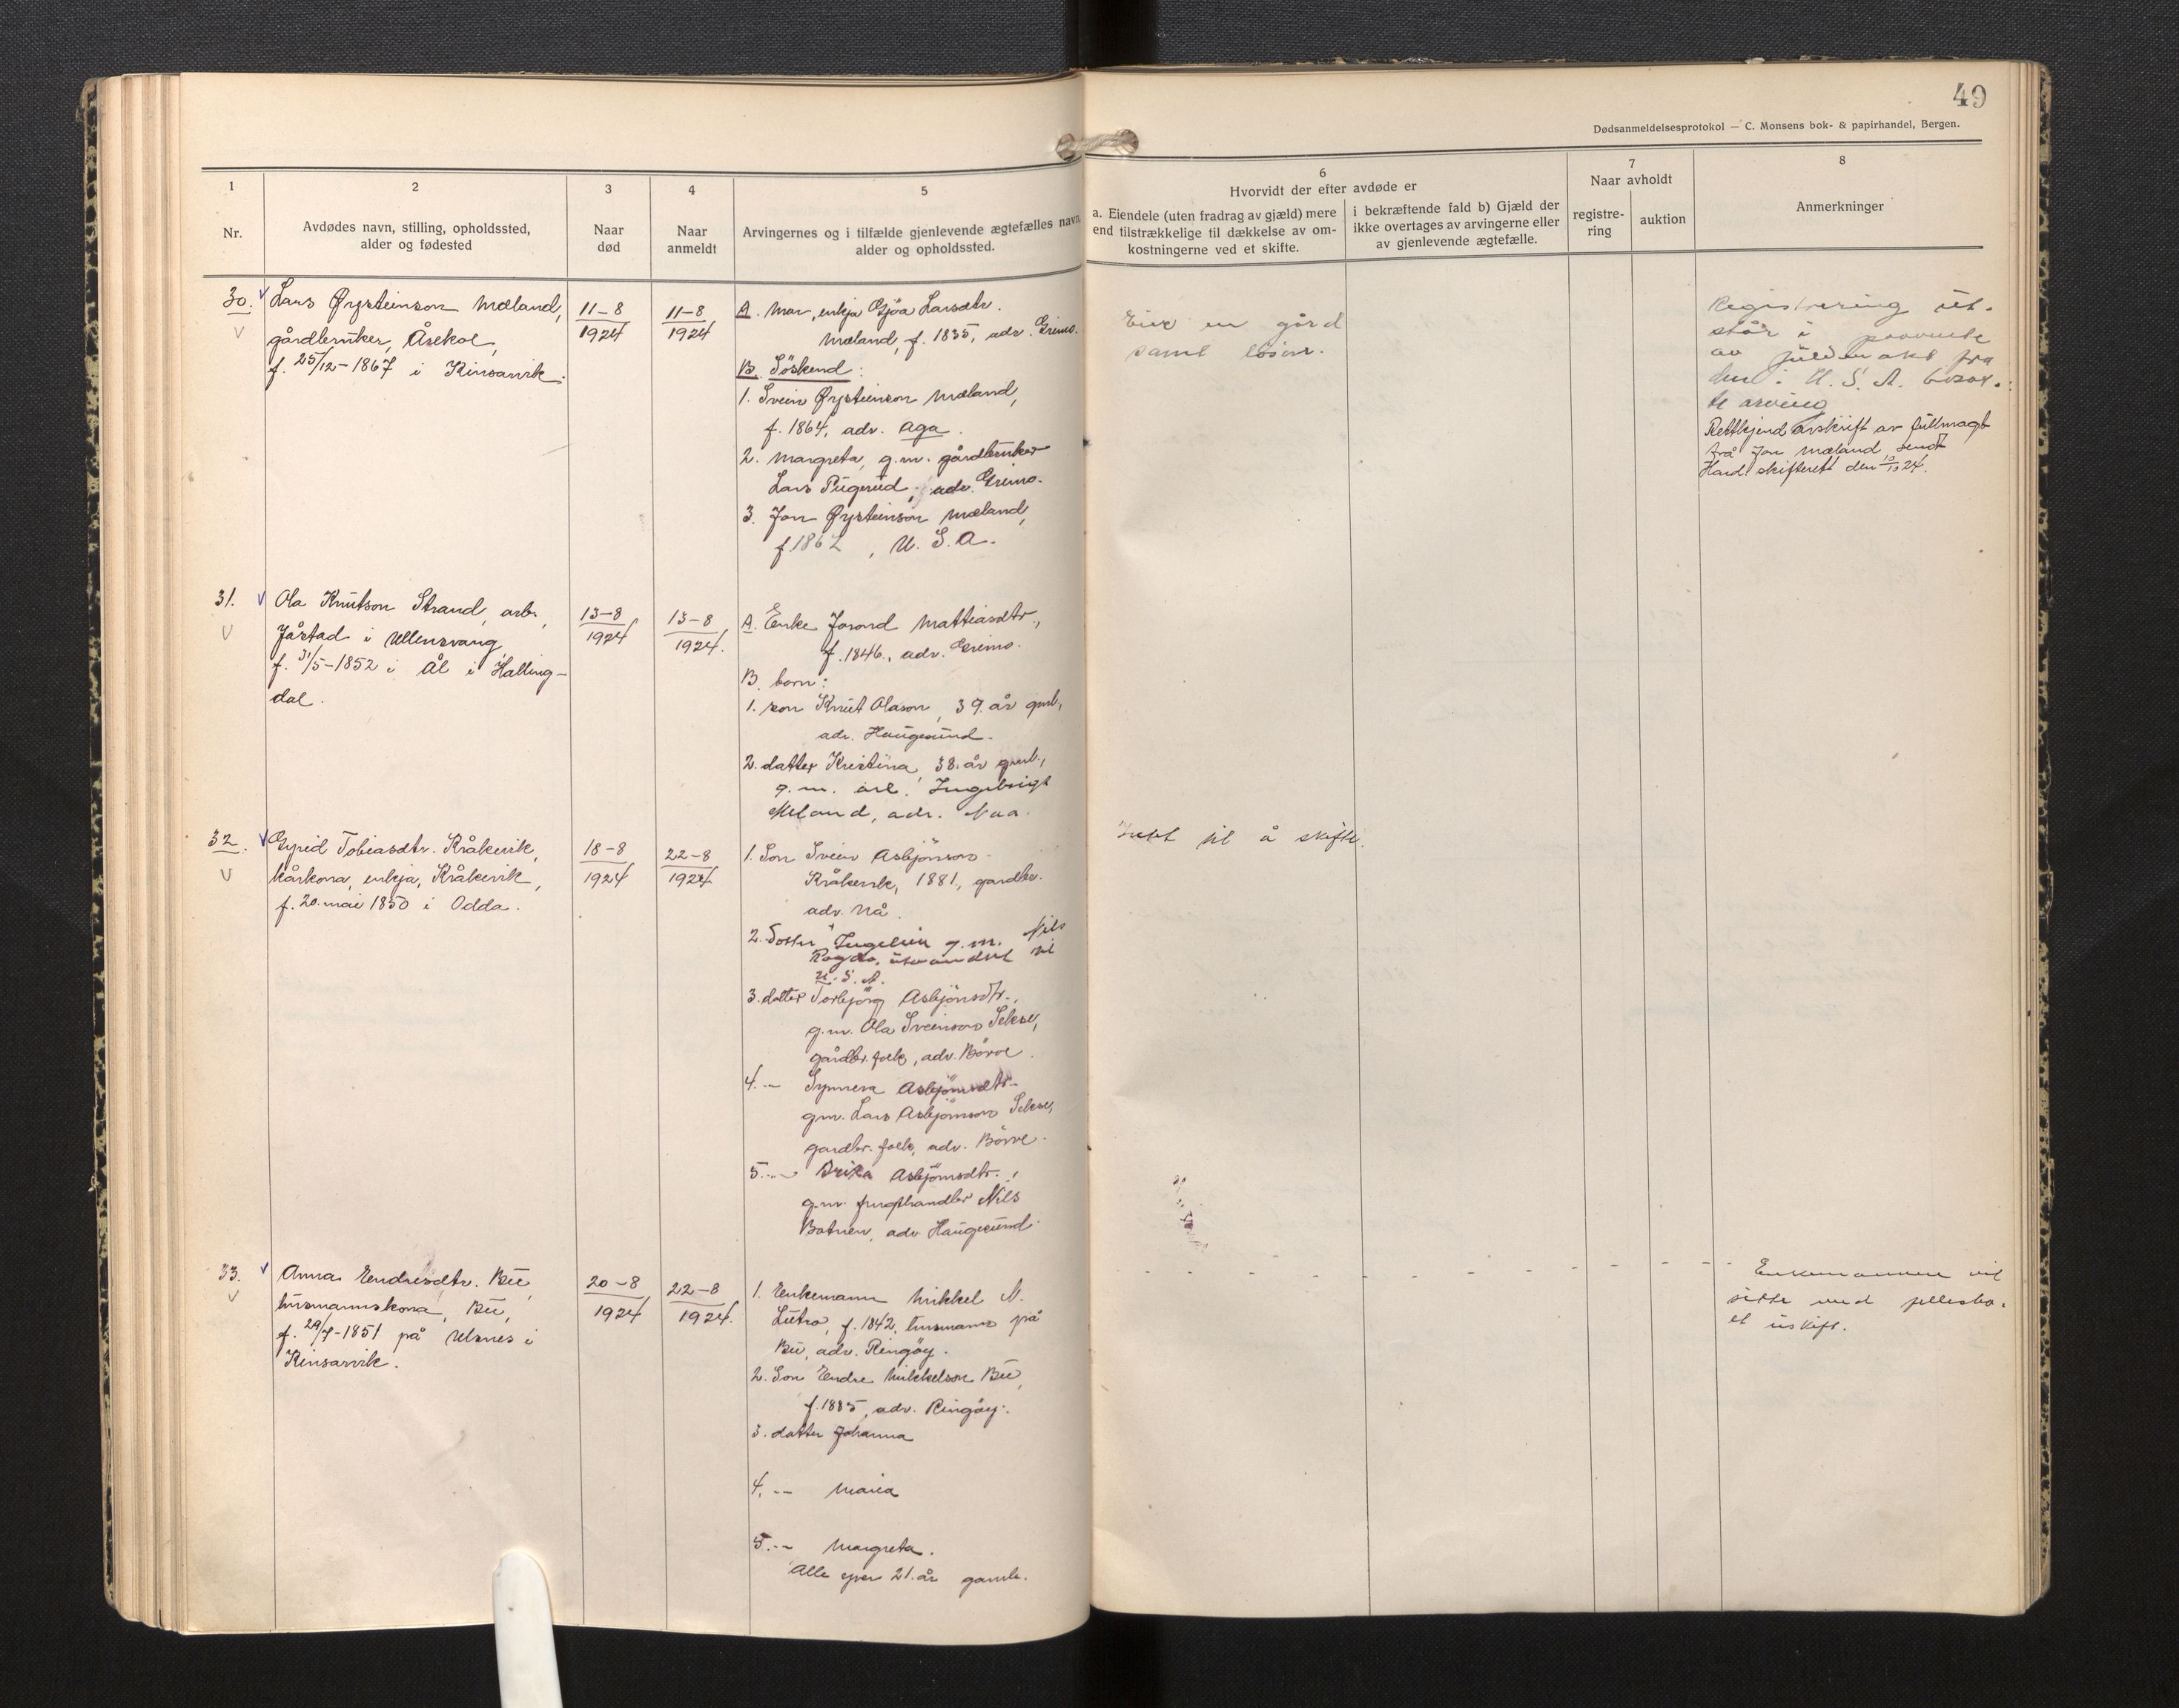 49
Dødsanmeldelsesprotokol — C. Monsens bok- & papirhandel, Bergen.
1
Nr.
2
Avdødes navn, stilling, opholdssted,
alder og fødested
3
Naar
død
4
Naar
anmeldt
5
Arvingernes og i tilfælde gjenlevende ægtefælles navn,
alder og opholdssted.
6
Hvorvidt der efter avdøde er
a. Eiendele (uten fradrag av gjæld) mere
end tilstrækkelige til dækkelse av om-
kostningerne ved et skifte.
i bekræftende fald b) Gjæld der
ikke overtages av arvingerne eller
av gjenlevende ægtefælle.
7
Naar avholdt
registre-
ring
auktion
8
Anmerkninger
30.
Lars Øysteinson Mæland,
gårdbruker, Åsekol,
f. 25/12-1867 i Kinsarvik.
11-8
1924
11-8
1924
A. Mor, enkja Gjöa Larsdtr.
Mæland, f. 1835, adr. Grimo.
B. Söskend:
1. Svein Øysteinson Mæland,
f. 1864, adr. Aga.
2. Margreta, g.m. gårdbruker
Lars Pügerud, adr. Grimo.
3. Jon Øysteinson Mæland,
f. 1862, U. S. A.
Eier en gård
samt lösöre.
Registrering ut-
står i
av fuldmakt fra
den i U. S. A.
te arving
Rettkjend avskrift av fullmagt
frå Jon Mæland sendt
Hard. skifterett den 13/10 24.
31.
Ola Knutson Strand, arb.,
Jåstad i Ullensvang
f. 31/5-1852 i Ål i Halling-
dal.
13-8
1924
13-8
1924.
A. Enke Jorond Mattiasdtr.,
f. 1846., adr. Grimo.
B. born:
1. son Knut Olason, 39. år gml.,
adr. Haugesund.
2. datter Kristina, 38. år gml.,
g.m. Ingebrigt
Meland, adr. Naa.
32.
Gyrid Tobiasdtr. Kråkevik,
kårkona, enkja, Kråkevik,
f. 20. mai 1850 i Odda.
18-8
1924
22-8
1924
1. Son Svein Asbjönson
Kråkevik, 1881, gardbr.
adr. Nå.
2. Dotter Ingelein g.m. Nils
Rogdo, utvandret til
U. S. A.
3. datter Torbjörg Asbjönsdtr.,
g.m. Ola Sveinson Sekse,
gårdbr. folk, adr. Börve.
4. -- Synneva Asbjönsdtr.
g.m. Lars Asbjönson Sekse,
gardbr. folk, adr. Börve.
5. -- Brita Asbjönsdtr.,
g.m. frugthandler Nils
Botnen, adr. Haugesund.
Intet til å skifte.
33.
Anna Endresdtr. Bu
husmannskona, Bu,
f. 29/7-1851 på Ulsnes i
Kinsarvik.
20-8
1924
22-8
1924.
1. Enkemann Mikkel N.
Lutro, f. 1842, husmann på
Bu, adr. Ringöy.
2. Son Endre Mikkelson Bu,
f. 1885, adr. Ringöy.
3. datter Johanna
4. -- Maria
5. -- Margreta.
Alle yver 21. år gamle.
Enkemannen vil
sitte med fellesbo-
et uskift.